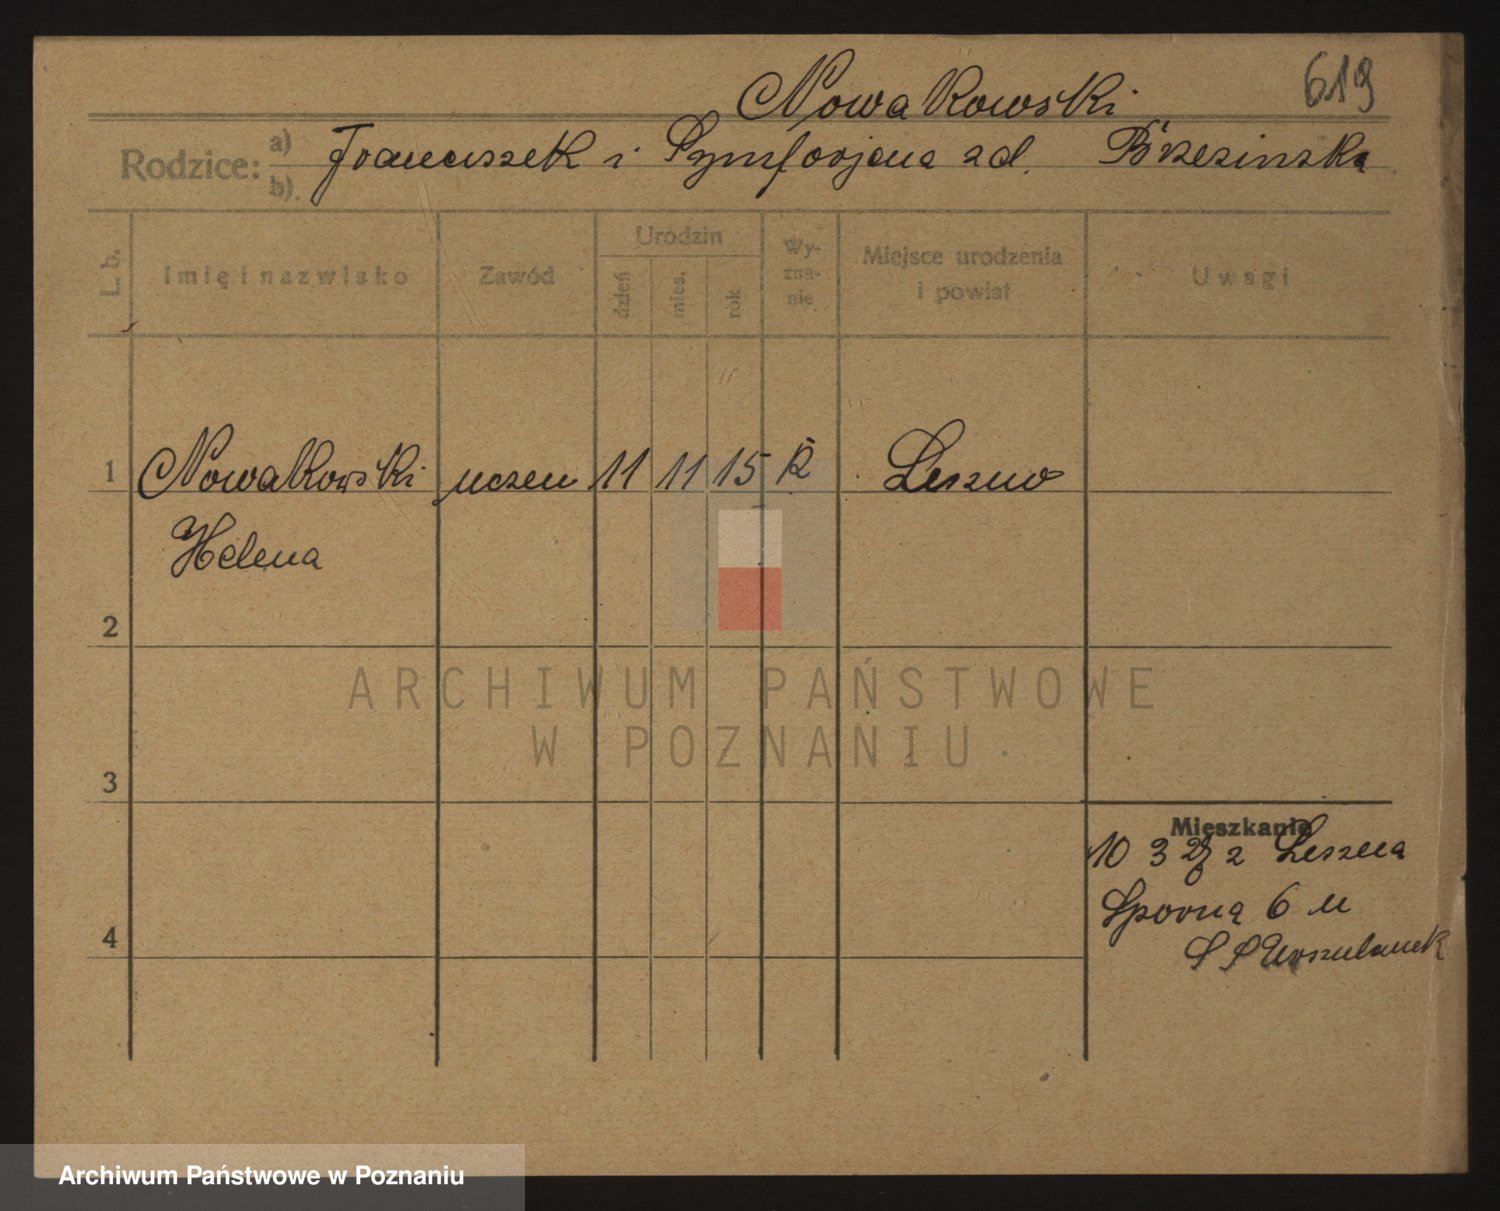 619
Nowakowski
Rodzice: a) b) Franciszek i Symforjana zd. Brzezinska
L. b.
Imię i nazwisko
Zawód
Urodzin
dzień
mies.
rok
Wy-
zna-
nie
Miejsce urodzenia
i powiat
Uwagi
1 Nowakowski uczen 11 11 15 K Leszno
Helena
2
3
Mieszkanie
10 3 z Leszna
Sporną 6 u
4
S S Urszulanek
ARCHIWUM PAŃSTWOWE
W POZNANIU
Archiwum Państwowe w Poznaniu